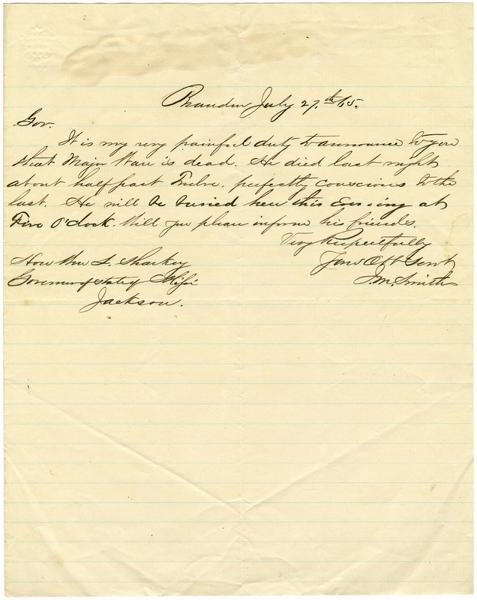 Brandon July 27th/65.
Gov.
It is my very painful duty to announce to you
that Major Ware is dead. He died last night
about half past Twelve. perfectly conscious to the
last. He will be buried here this Evening at
Five O'clock. Will you please inform his friends.
Very Respectfully
Hon Wm L. Sharkey
Your Obt Servt
Governor of State of Missi
J.M. Smith
Jackson.